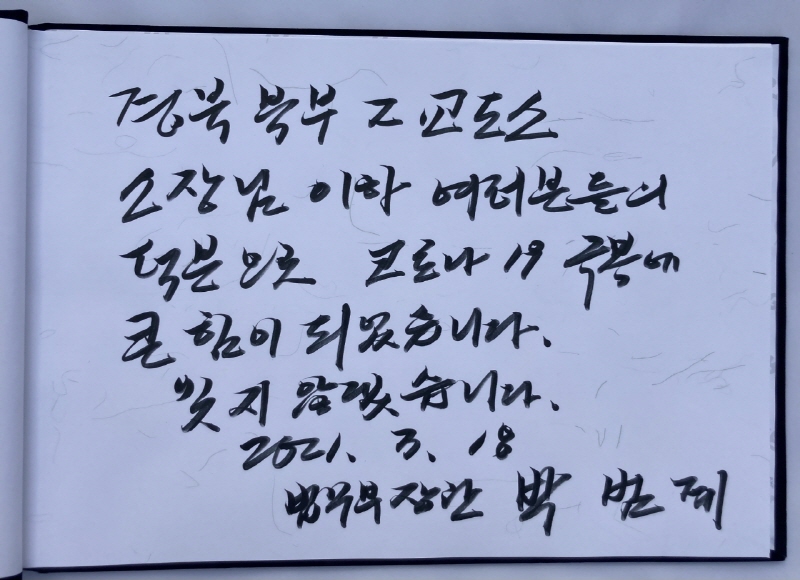 경북 북부 2 교도소
소장님 이하 여러분들의
덕분으로 코로나 19 극복에
큰 힘이 되었습니다.
잊지 않겠습니다.
2021. 3. 18
법무부장관 박범계